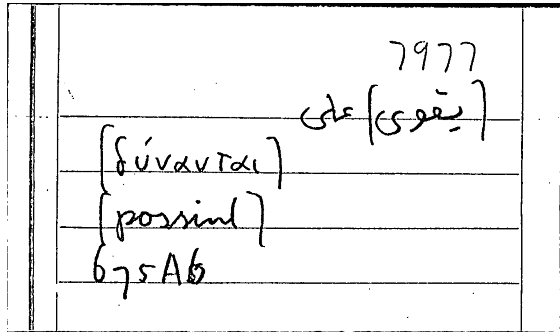 7977
[يقوى] على
[δύνανται]
[possint]
675A6